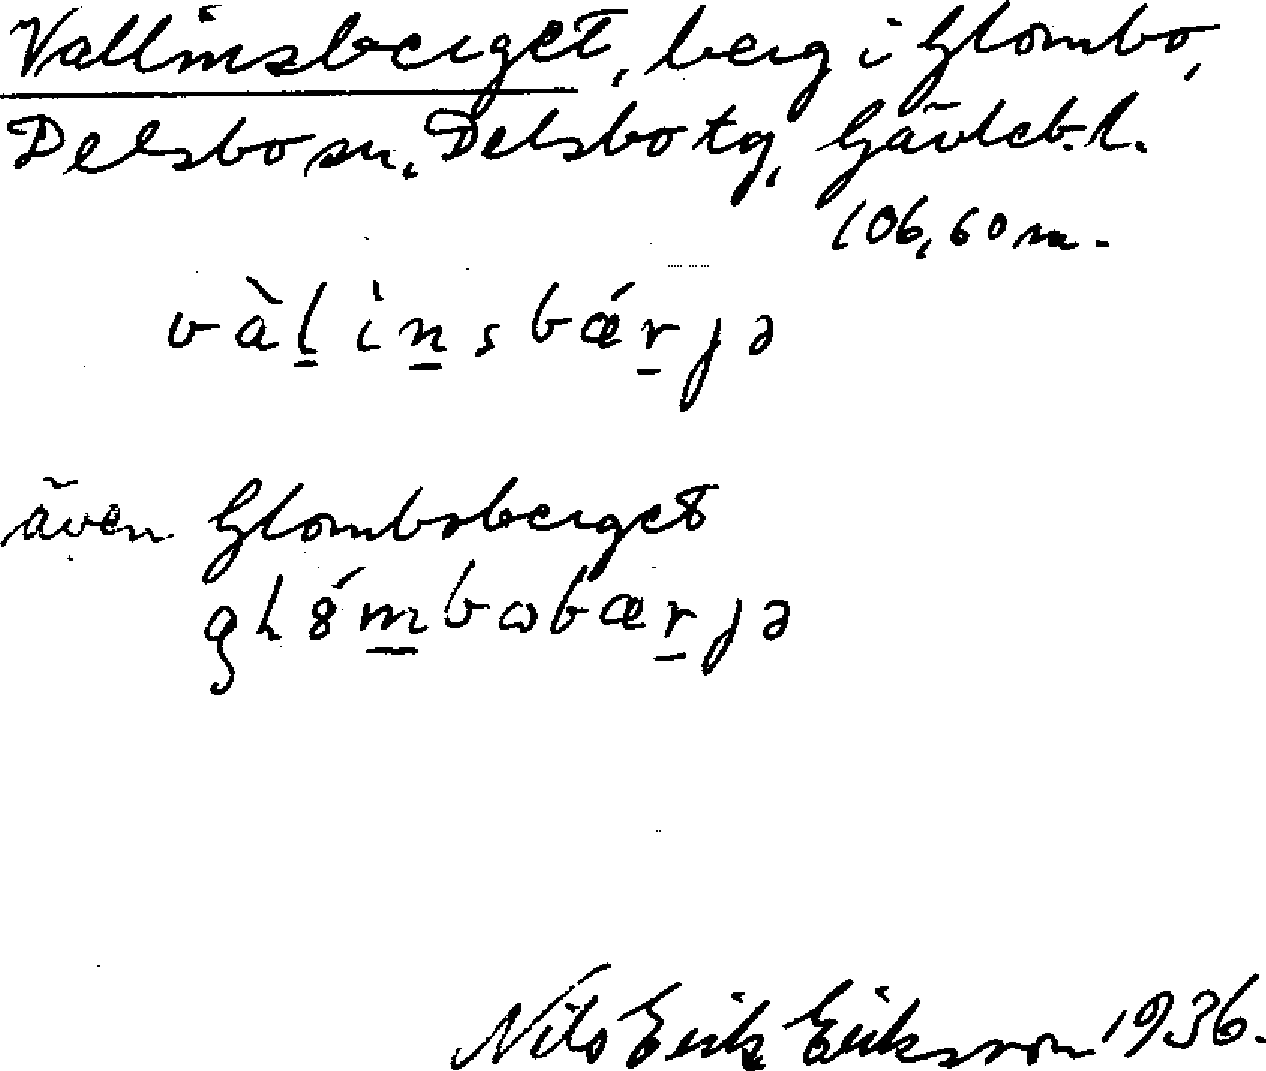 Vallinsberget, berg i Glombo,
Delsbo sn, Delsbo tg, Gävleb. l.
106,60 m.
vàl̲in̲sbǽr̲jə
även Glomboberget
gl8́m̲bωbær̲jə
Nils Erik Eriksson 1936.